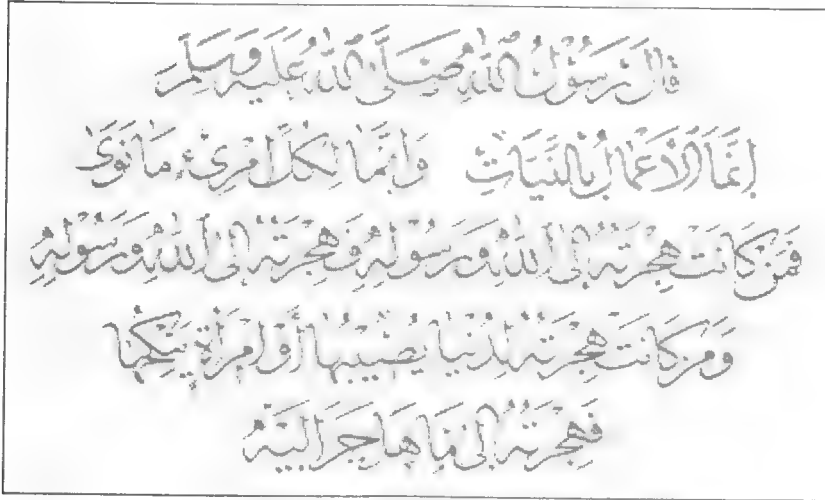 قَالَ رَسُوْلُ اللهِ صَلَّى اللهُ عَلَيْهِ وَسَلَّمَ
إِنَّمَا الْأَعْمَالُ بِالنِّيَّاتِ وَإِنَّمَا لِكُلِّ امْرِئٍ مَا نَوَى
فَمَنْ كَانَتْ هِجْرَتُهُ إِلَى اللهِ وَرَسُوْلِهِ فَهِجْرَتُهُ إِلَى اللهِ وَرَسُوْلِهِ
وَمَنْ كَانَتْ هِجْرَتُهُ لِدُنْيَا يُصِيْبُهَا أَوْ امْرَأَةٍ يَنْكِحُهَا
فَهِجْرَتُهُ إِلَى مَا هَاجَرَ إِلَيْهِ